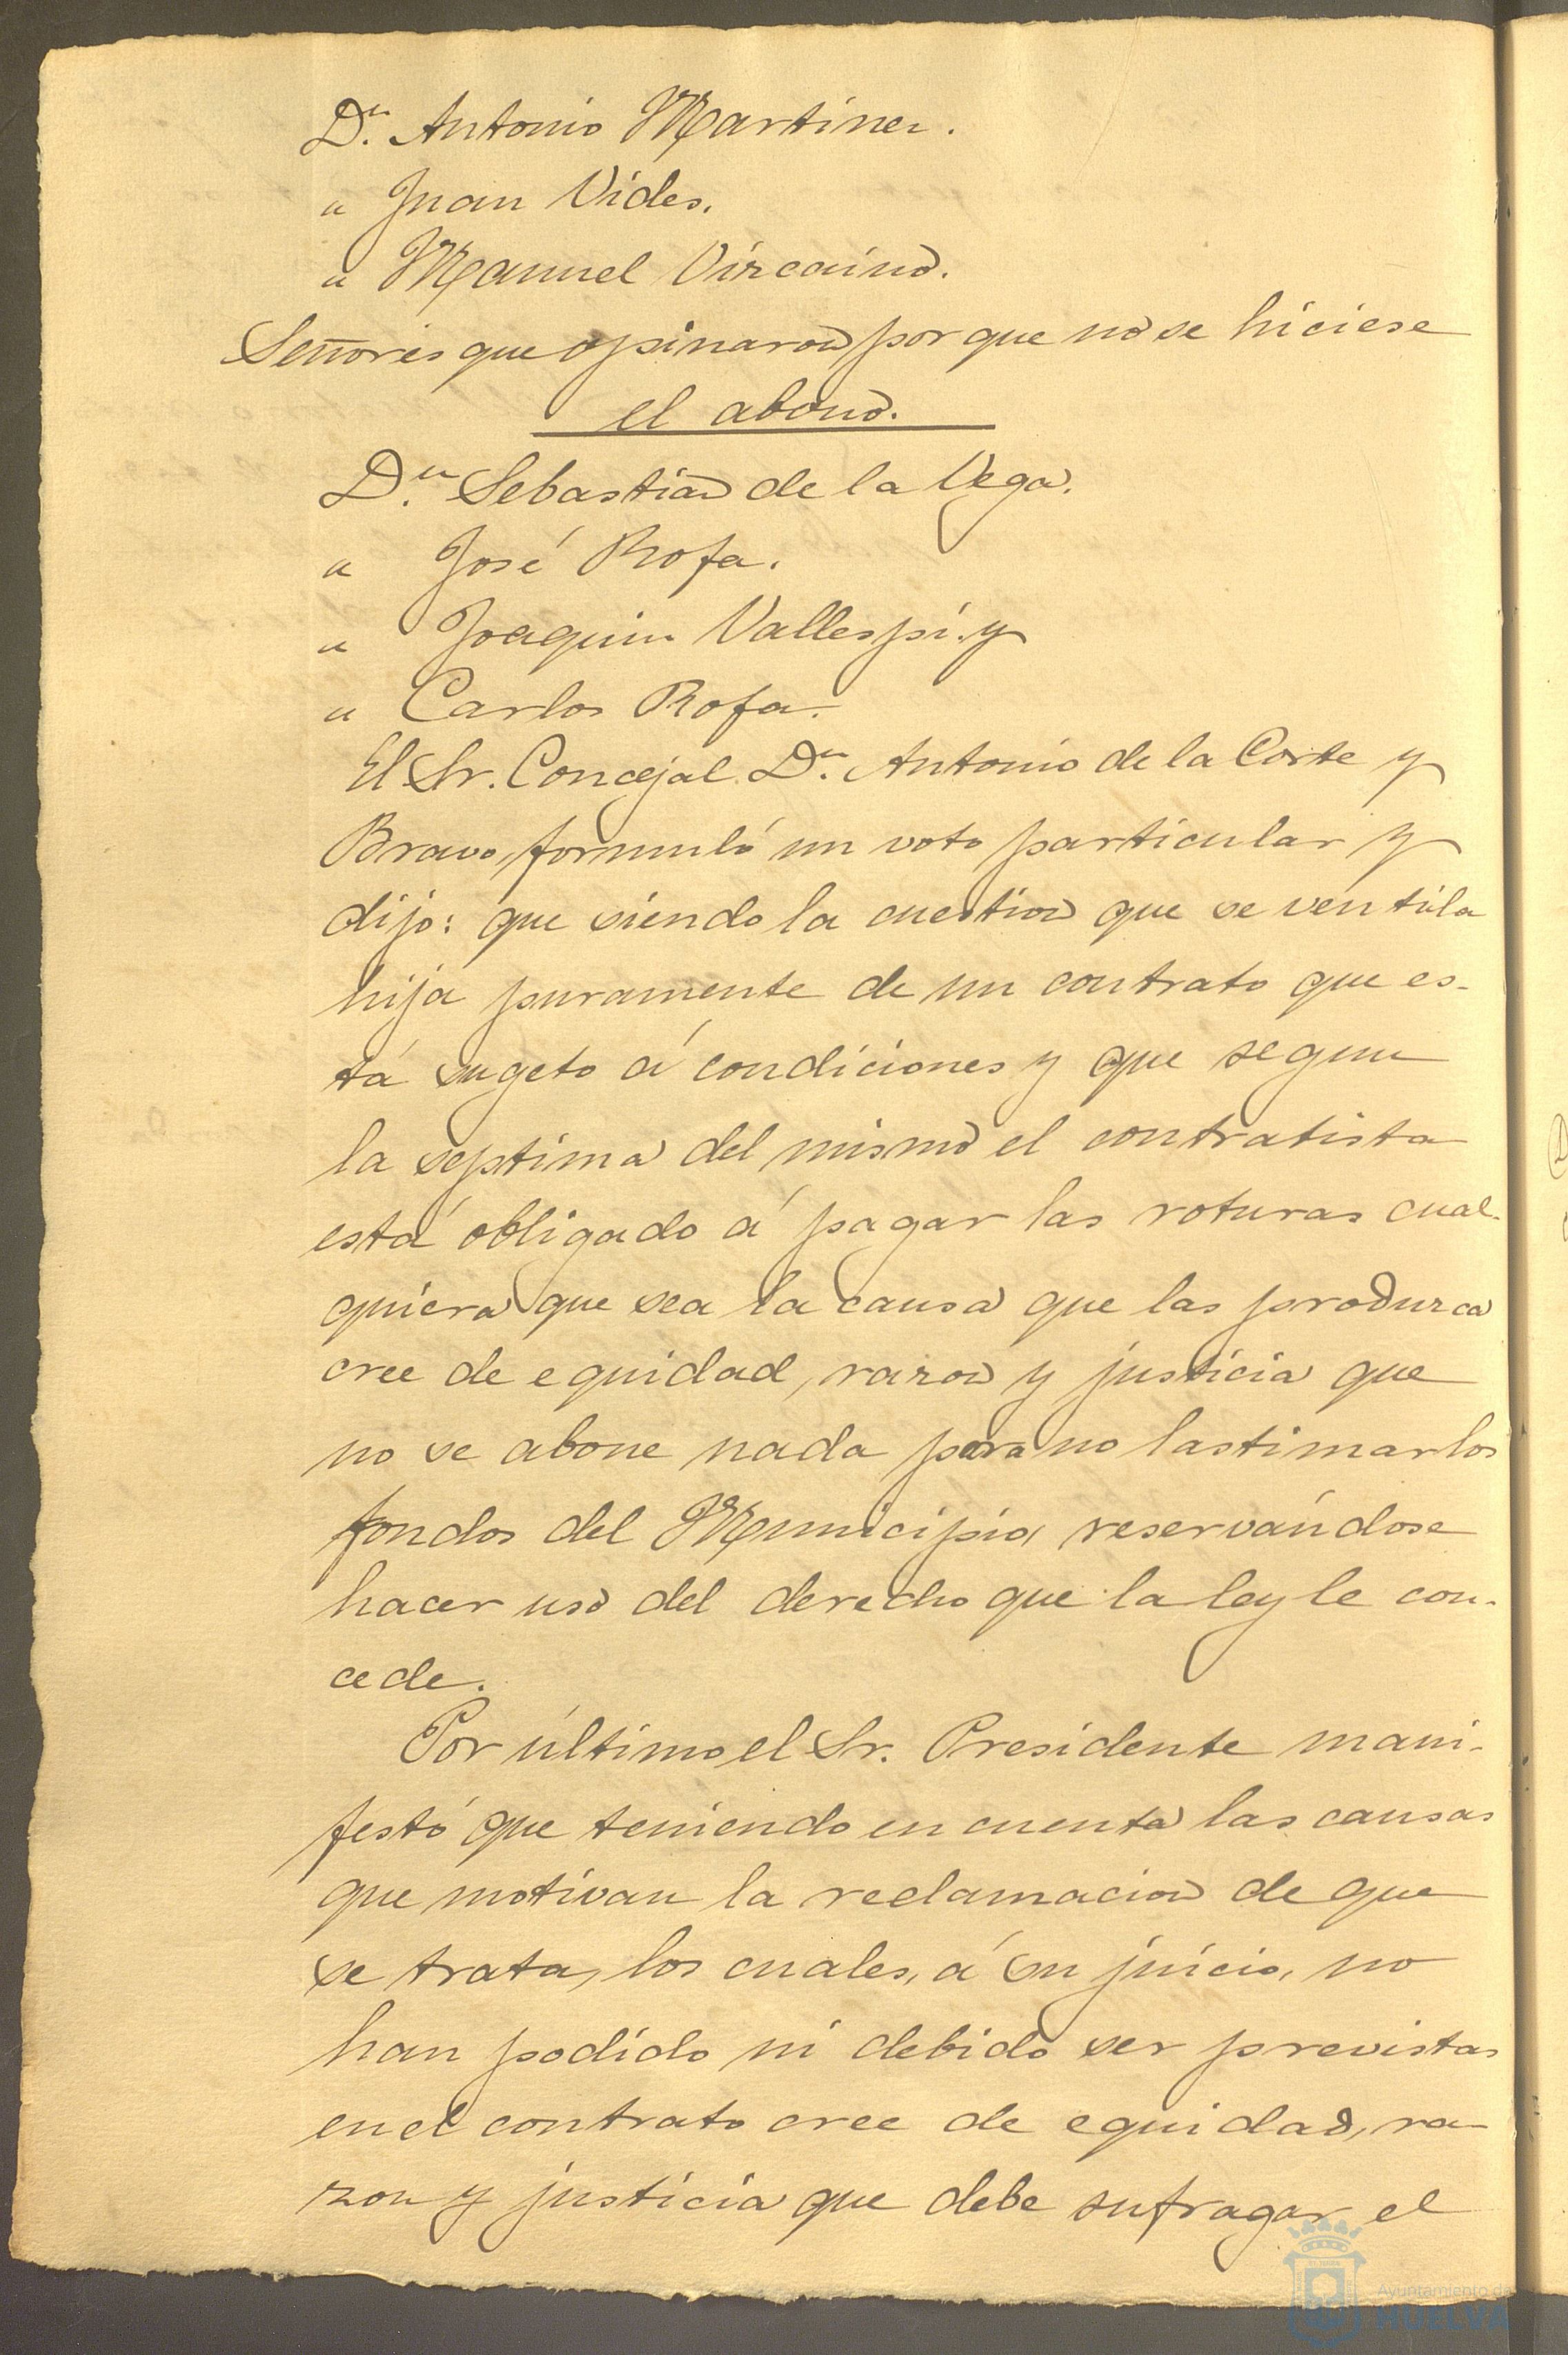 D.ⁿ Antonio Martinez.
" Juan Vides.
" Manuel Vizcaino.
Señores que opinaron porque no se hiciese
el abono.
D.ⁿ Sebastian de la Vega.
" José Rofa.
" Joaquin Vallespí. y
" Carlos Rofa.
El Sr. Concejal D.ⁿ Antonio de la Corte y
Bravo, formuló un voto particular y
dijo: que siendo la cuestion que se ventila
hija puramente de un contrato que es-
tá sugeto á condiciones y que segun
la septima del mismo el contratista
está obligado á pagar las roturas cual-
quiera que sea la causa que las produzca
cree de equidad, razon y justicia que
no se abone nada para no lastimar los
fondos del Municipio, reservándose
hacer uso del derecho que la ley le con-
cede.
Por último el Sr. Presidente mani-
festó que teniendo en cuenta las causas
que motivan la reclamacion de que
se trata, los cuales, á su juicio, no
han podido ni debido ser previstas
en el contrato cree de equidad, ra-
zon y justicia que debe sufragar el
Ayuntamiento de
HUELVA